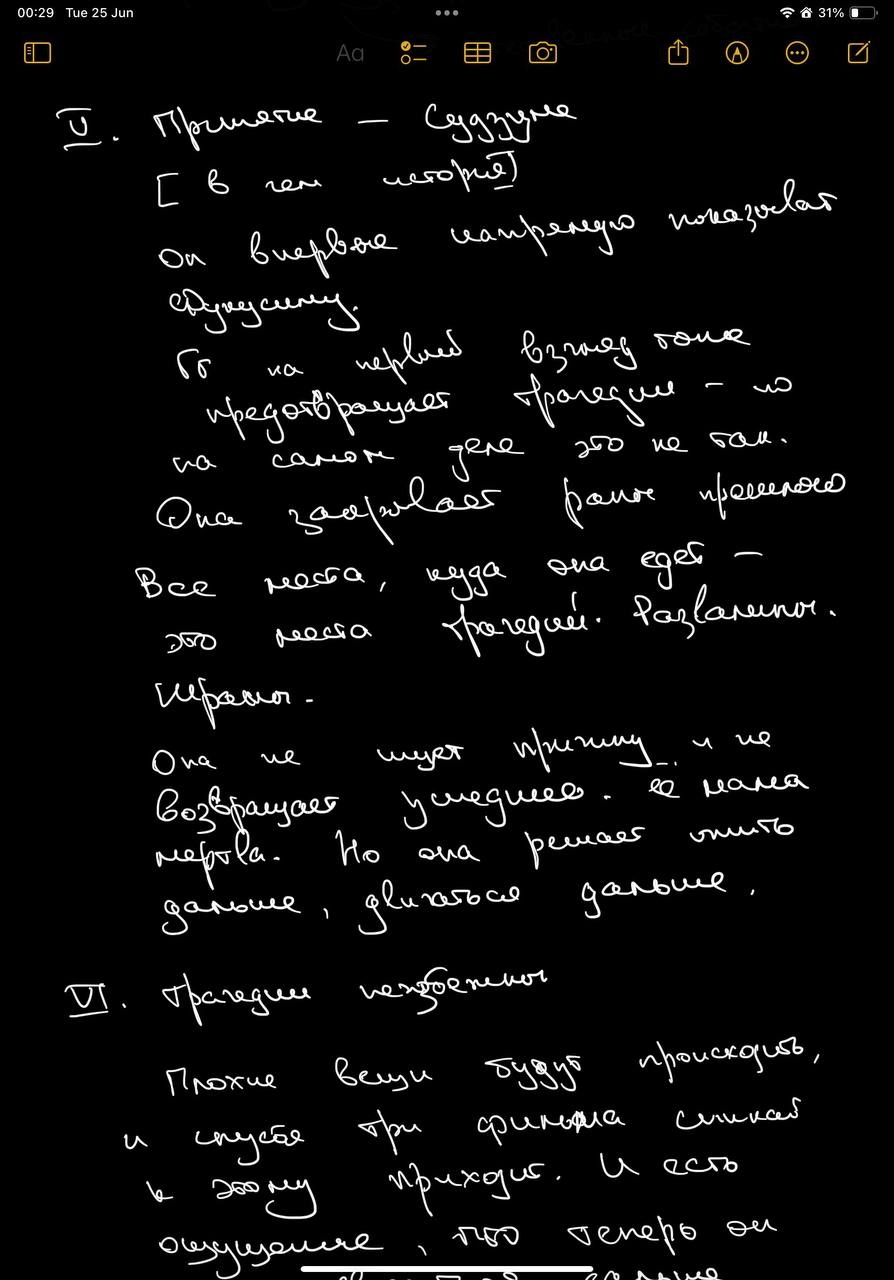 00:29 Tue 25 Jun 31%
Aa
V. Принятие — Судзуме
[ в чем история]
Он впервые напрямую показывает
Фукусиму.
ГГ на первый взгляд тоже
предотвращает трагедии — но
на самом деле это не так.
Она закрывает раны прошлого
Все места, куда она едет —
это места трагедий. Развалины.
Шрамы.
Она не ищет причину и не
возвращает ушедшее. Её мама
мертва. Но она решает жить
дальше, двигаться дальше.
VI. Трагедии неизбежны
Плохие вещи будут происходить,
и спустя три фильма Синкай
к этому приходит. И есть
ощущение, что теперь он
дальше